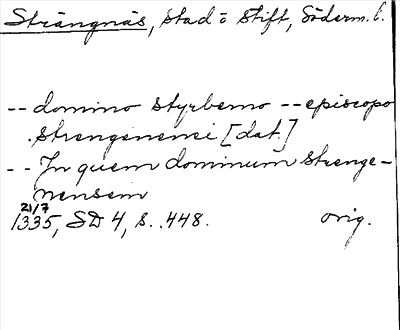 Strängnäs, stad o stift, Söderm. l.
-- domino styrberno -- episcopo
strengenensi [dat.]
-- In quem dominum strenge-
nensem
21/7
1335, SD 4, s. 448. orig.